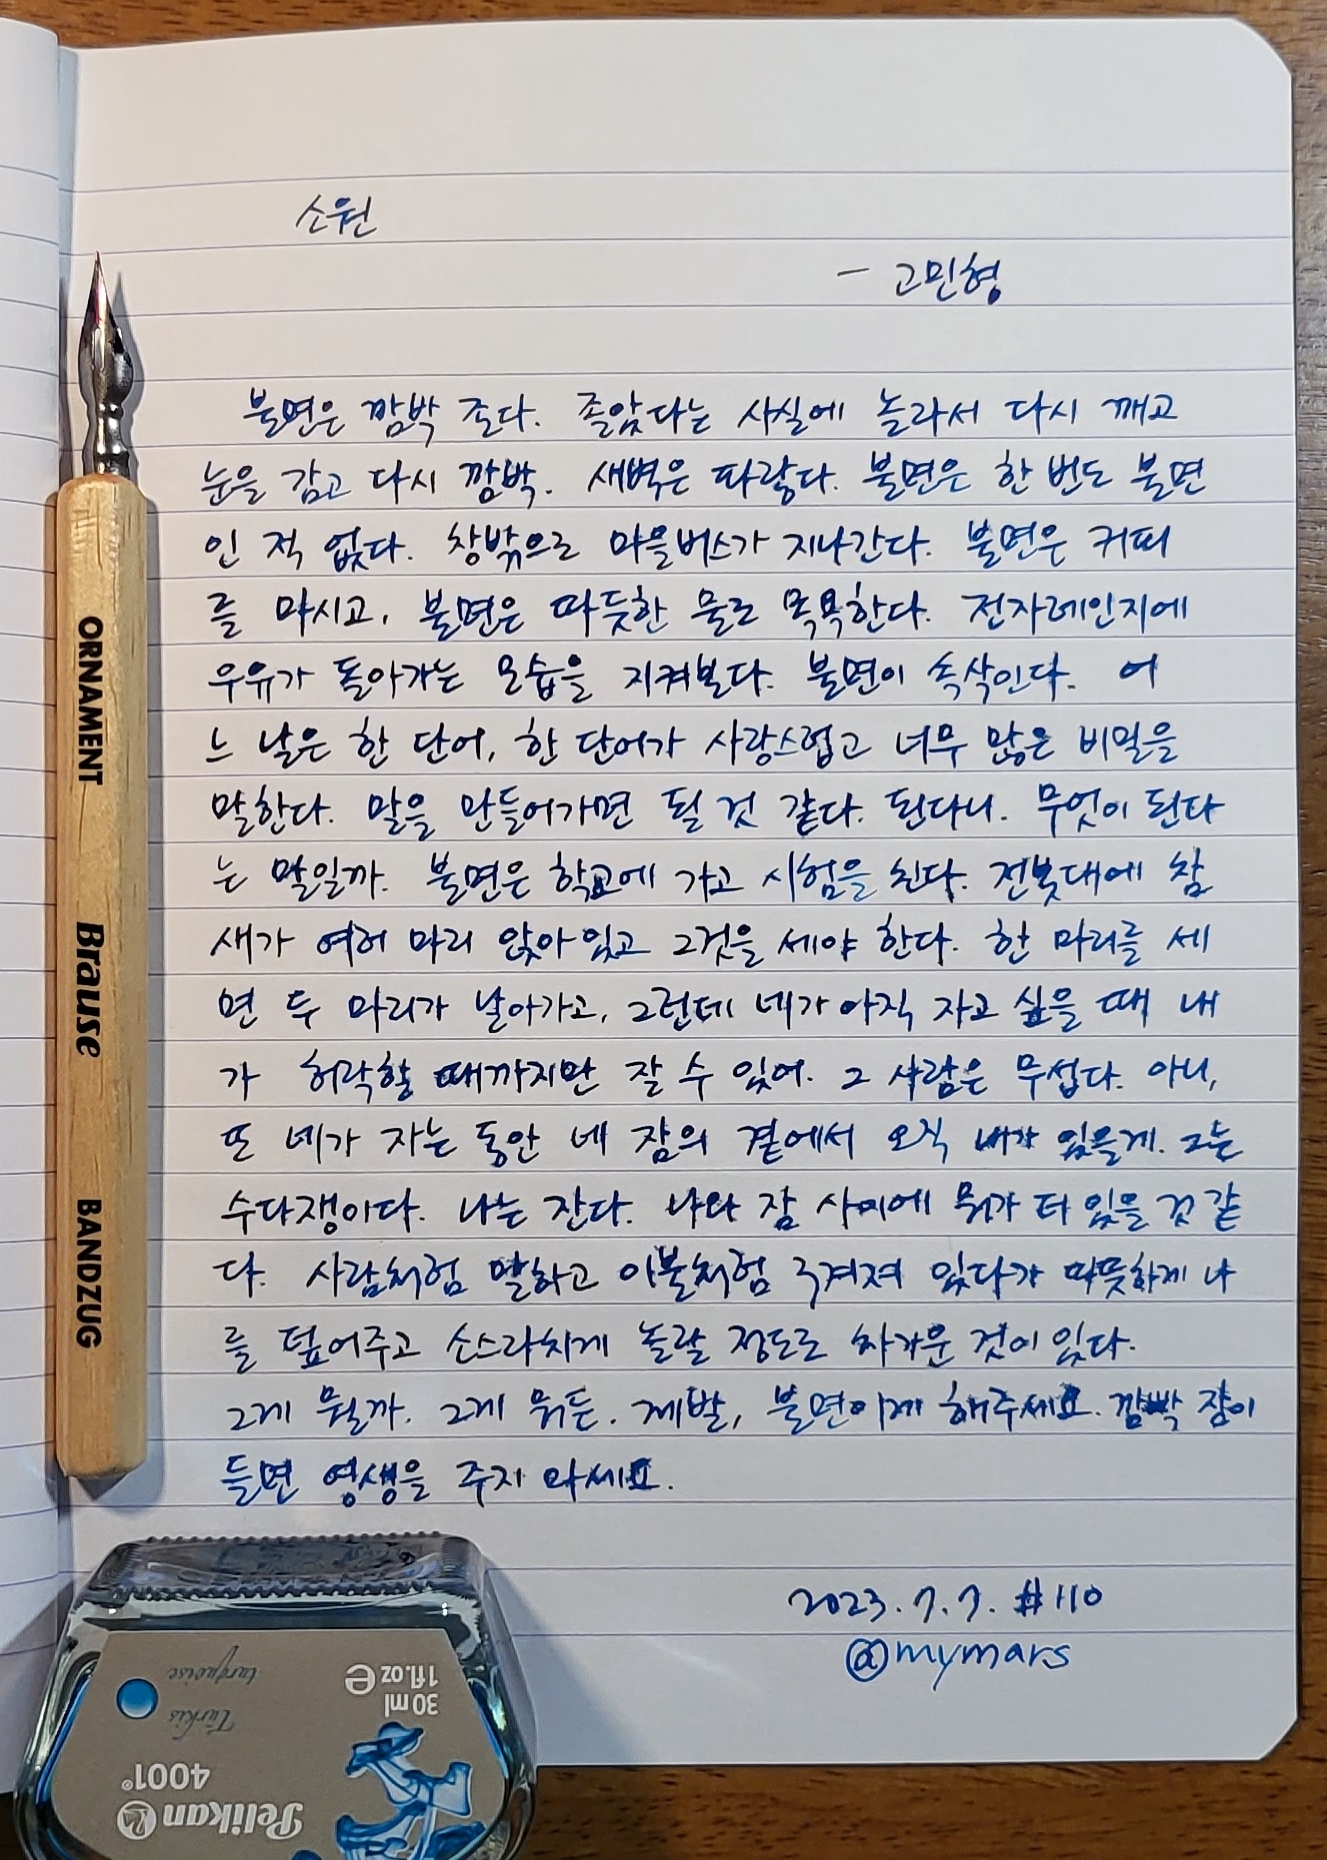 소원
- 고민형
불면은 깜박 존다. 졸았다는 사실에 놀라서 다시 깨고
눈을 감고 다시 깜박. 새벽은 파랗다. 불면은 한 번도 불면
인 적 없다. 창밖으로 마을버스가 지나간다. 불면은 커피
를 마시고, 불면은 따듯한 물로 목욕한다. 전자레인지에
우유가 돌아가는 모습을 지켜보다. 불면이 속삭인다. 어
느 날은 한 단어, 한 단어가 사랑스럽고 너무 많은 비밀을
말한다. 말을 만들어가면 될 것 같다. 된다니. 무엇이 된다
는 말일까. 불면은 학교에 가고 시험을 친다. 전봇대에 참
새가 여러 마리 앉아 있고 그것을 세야 한다. 한 마리를 세
면 두 마리가 날아가고, 그런데 네가 아직 자고 싶을 때 내
가 허락할 때까지만 잘 수 있어. 그 사람은 무섭다. 아니,
또 네가 자는 동안 네 잠의 곁에서 오직 내가 있을게. 그는
수다쟁이다. 나는 잔다. 나와 잠 사이에 뭐가 더 있을 것 같
다. 사람처럼 말하고 이불처럼 구겨져 있다가 따뜻하게 나
를 덮어주고 소스라치게 놀랄 정도로 차가운 것이 있다.
그게 뭘까. 그게 뭐든. 제발, 불면이게 해주세요. 깜빡 잠이
들면 영생을 주지 마세요.
2023.7.7. #110
@mymars
ORNAMENT Brause BANDZUG
Pelikan
4001®
Türkis
turquoise
30 ml
1 fl.oz e